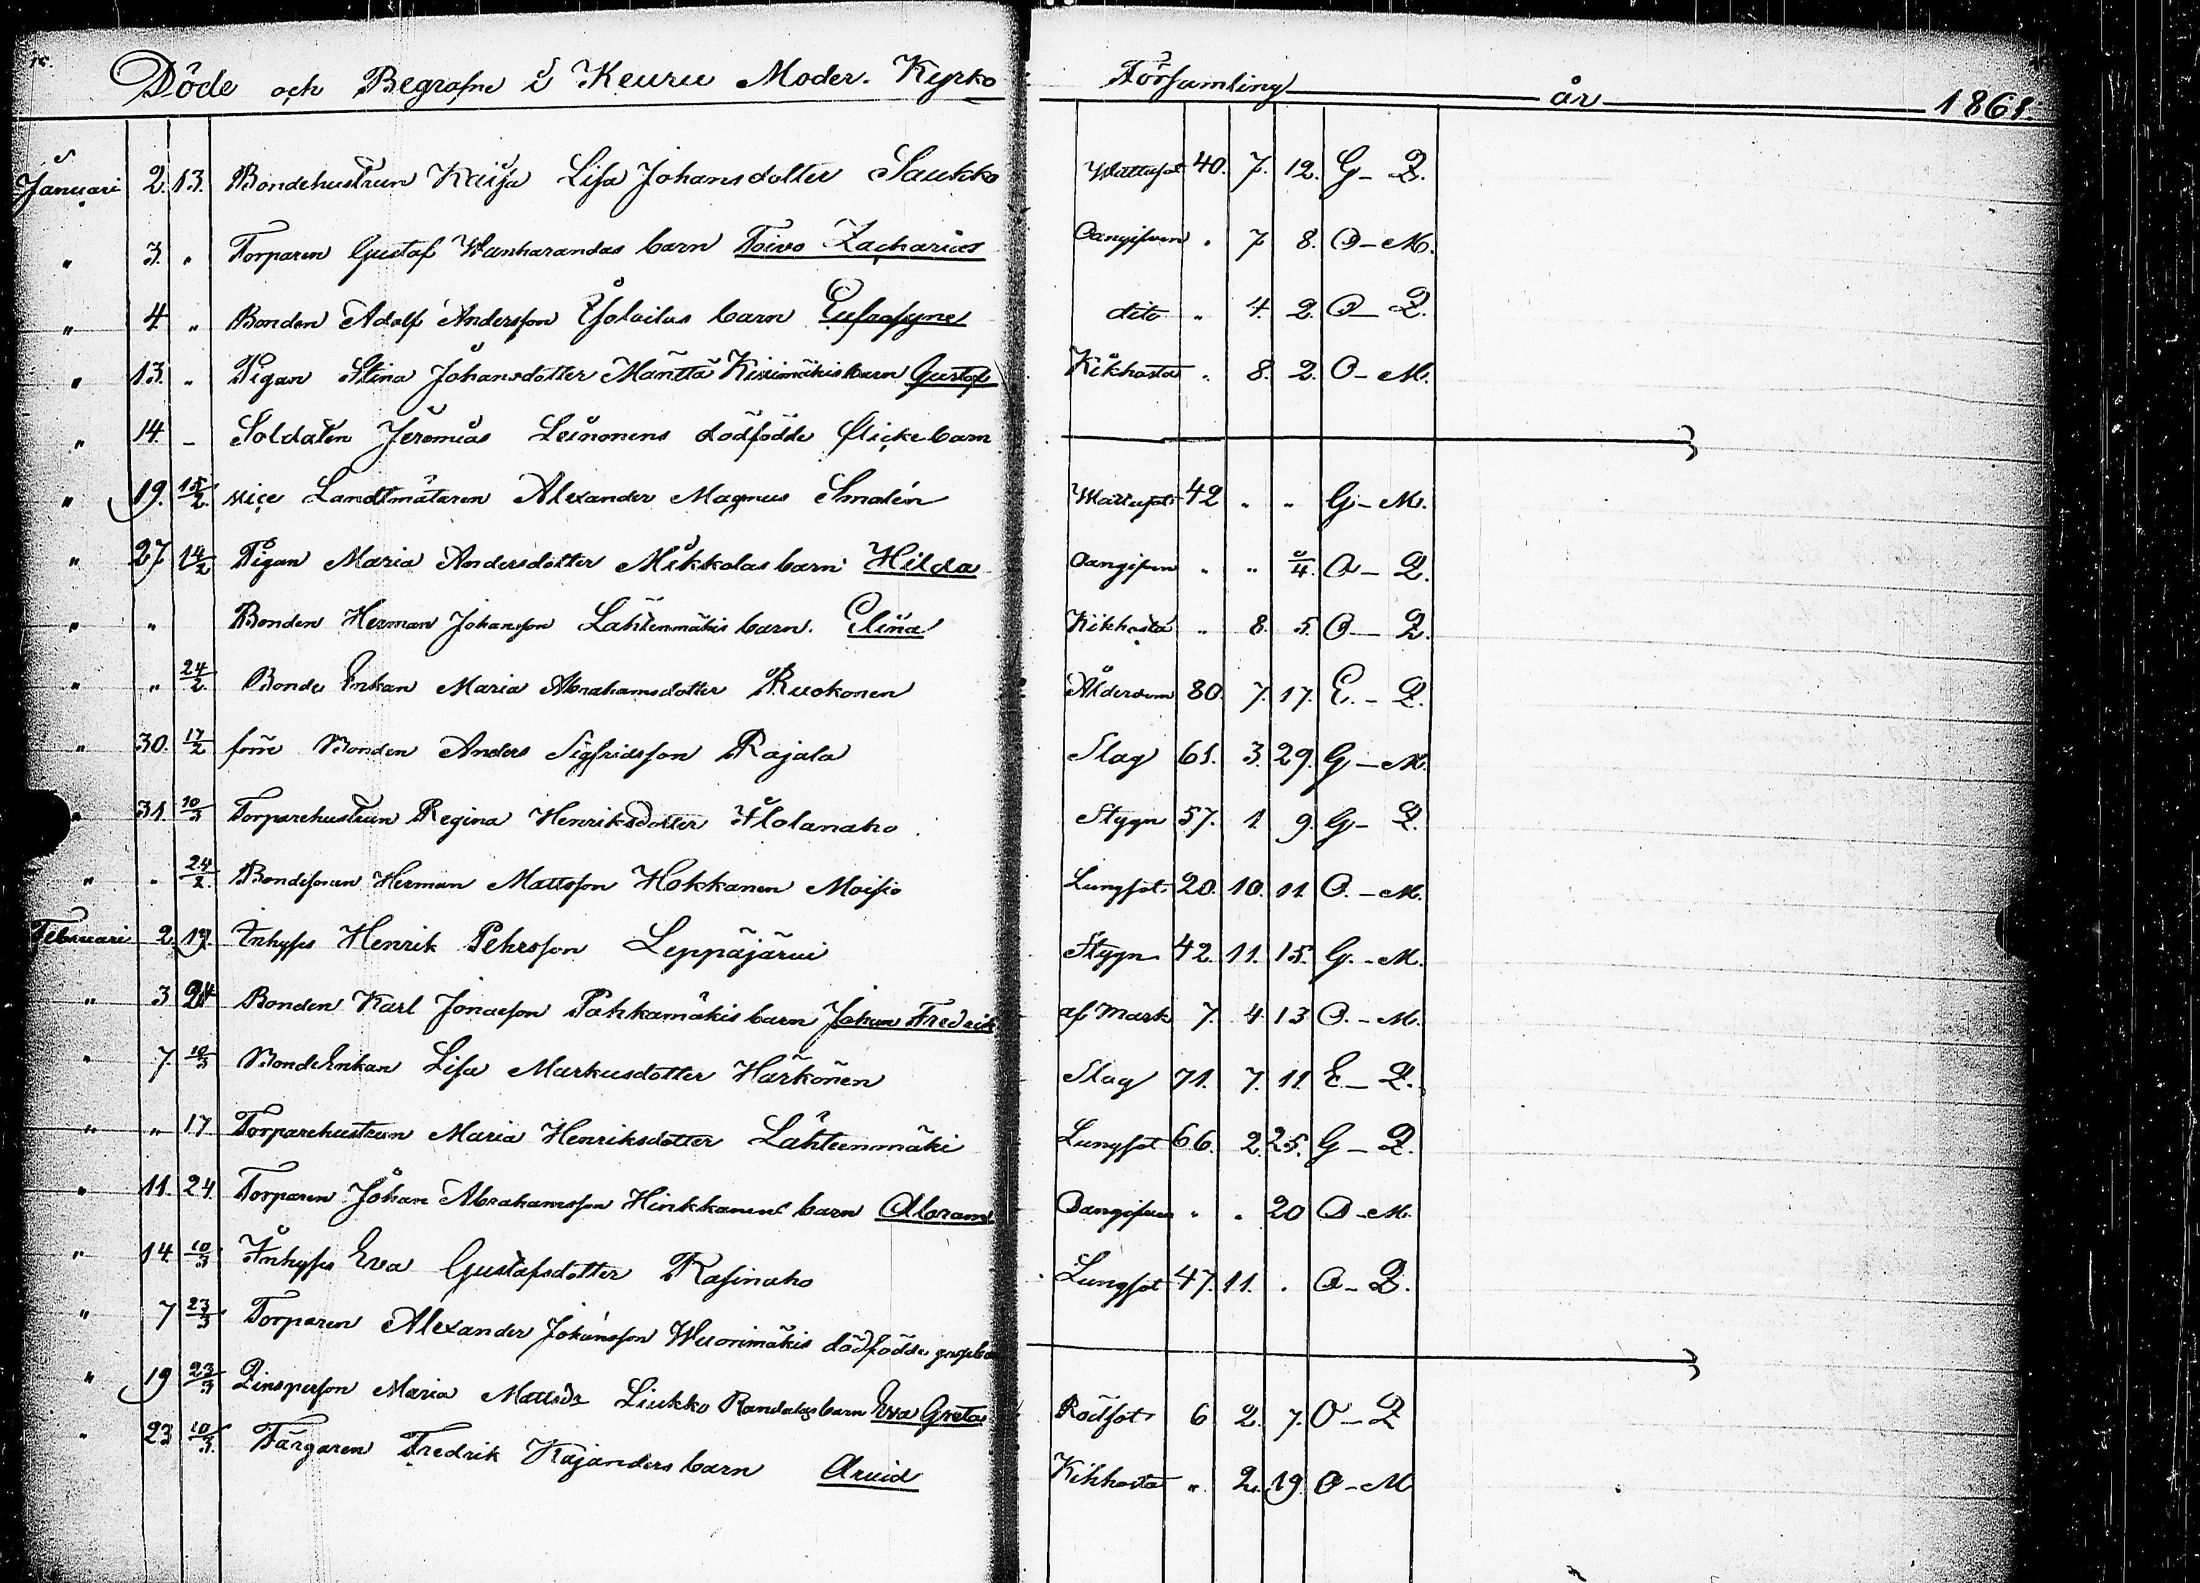 Döde och Begrafne i Keuru Moder-Kyrko Församling år 1861.
Januari 2. 13. Bondehustrun Kaisa Lisa Johansdotter Saukko Wattusot 40. 7. 12. G - Q.
" 3. " Torparen Gustaf Wanharandas barn Toivo Zacharias Oangifven " 7 8. O - M.
" 4 " Bonden Adolf Andersson barn Eufrosyne dito " 4. 2. O - Q.
" 13. " Pigan Stina Johansdotter Mänttä Kivimäkis barn Gustaf Kikhosta " 8. 2. O - M.
" 14. - Soldaten Jeremias Leinonens dödfödde flickebarn
" 19. 15/2. vice Landtmätaren Alexander Magnus Smalén Wattusot 42 " " G - M.
" 27 14/2 Pigan Maria Andersdotter Mikkolas barn Hilda Oangifven " " /4. O - Q.
" " Bonden Herman Johansson Lähtenmäkis barn. Elina Kikhosta " 8. 5. O - Q.
" " 24/2. Bonde Enkan Maria Abrahamsdotter Ruokonen Ålderdom 80. 7. 17. E. - Q.
" 30. 17/2 förre Bonden Anders Sigfridsson Rajala Slag 61. 3. 29. G - M.
" 31. 10/3 Torparehustrun Regina Henriksdotter Holanaho Stygn 57. 1. 9. G - Q.
" " 24/2. Bondesonen Herman Mattsson Hokkanen Moisio Lungsot 20. 10. 11. O. - M.
Februari 2. 17. Inhyses Henrik Pehrsson Leppäjärvi Stygn 42. 11. 15. G. - M.
" 3 24 Bonden Karl Jonasson Pohkamäkis barn Johan Fredrik af Mask 7. 4 13 O. - M.
" 7. 10/3 BondeEnkan Lisa Markusdotter Härkönen Slag 71. 7. 11 E - Q.
" " 17 Torparehustrun Maria Henriksdotter Lähteenmäki Lungsot 66. 2. 25. G - Q.
" 11. 24. Torparen Johan Abrahamsson Hinkkanens barn Abram Oangifven " " 20 O - M.
" 14. 10/3 Inhyses Eva Gustafsdotter Rasinaho Lungsot 47. 11. . O - Q.
" 7 23/3 Torparen Alexander Johansson Wuorimäkis dödfödde
" 19 23/3 Maria Mattsdr Liukko Randalas barn Eva Greta Rödsot 6 2. 7. O - Q
" 23 10/3. Färgaren Fredrik Kajanders barn Arvid Kikhosta " 2. 19. O - M